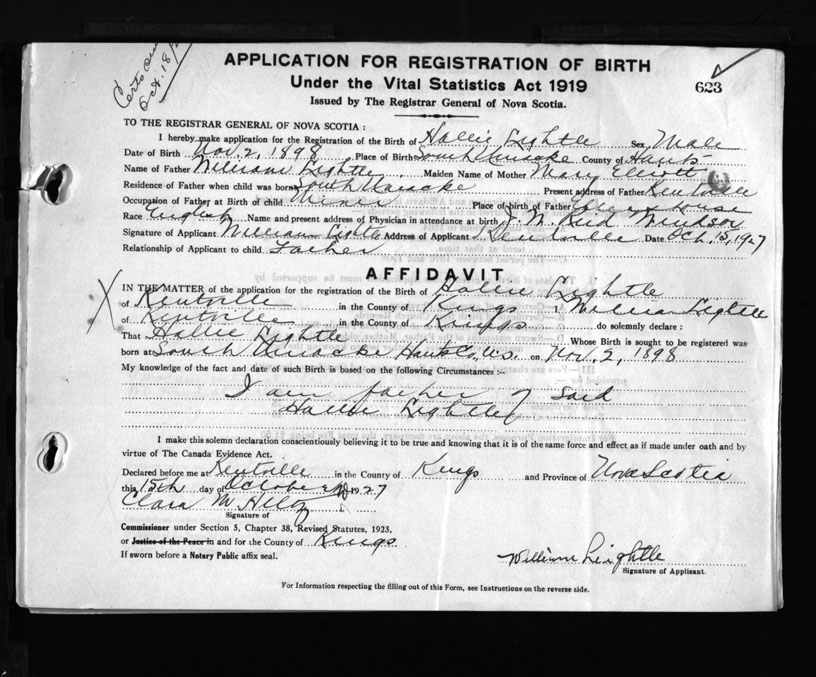 Certs
Oct. 18
APPLICATION FOR REGISTRATION OF BIRTH
Under the Vital Statistics Act 1919
623
Issued by The Registrar General of Nova Scotia.
TO THE REGISTRAR GENERAL OF NOVA SCOTIA :
I hereby make application for the Registration of the Birth of Hallie Lightle Sex Male
Date of Birth Nov. 2, 1898 Place of Birth South Uniacke County of Hants
Name of Father William Lightle Maiden Name of Mother Mary Elliott
Residence of Father when child was born South Uniacke Present address of Father Kentville
Occupation of Father at Birth of child Miner Place of birth of Father
Race English Name and present address of Physician in attendance at birth J. M. Reid Windsor
Signature of Applicant William Lightle Address of Applicant Kentville Date Oct. 15, 1927
Relationship of Applicant to child Father
AFFIDAVIT
IN THE MATTER of the application for the registration of the Birth of Hallie Lightle
of Kentville in the County of Kings I, William Lightle
of Kentville in the County of Kings do solemnly declare :
That Hallie Lightle Whose Birth is sought to be registered was
born at South Uniacke Hants Co. N.S. on Nov. 2, 1898
My knowledge of the fact and date of such Birth is based on the following Circumstances :-
I am father of said
Hallie Lightle
I make this solemn declaration conscientiously believing it to be true and knowing that it is of the same force and effect as if made under oath and by
virtue of The Canada Evidence Act.
Declared before me at Kentville in the County of Kings and Province of Nova Scotia
this 15th day of October 1927
Clara M. Hiltz
Signature of
Commissioner under Section 5, Chapter 38, Revised Statutes, 1923,
or Justice of the Peace in and for the County of Kings
If sworn before a Notary Public affix seal.
William Leightle
Signature of Applicant.
For Information respecting the filling out of this Form, see Instructions on the reverse side.